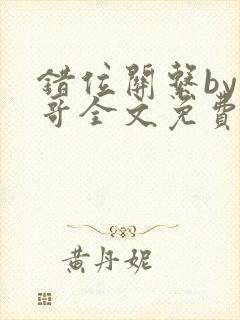 错位關繫by
哥全文免費
黃丹妮